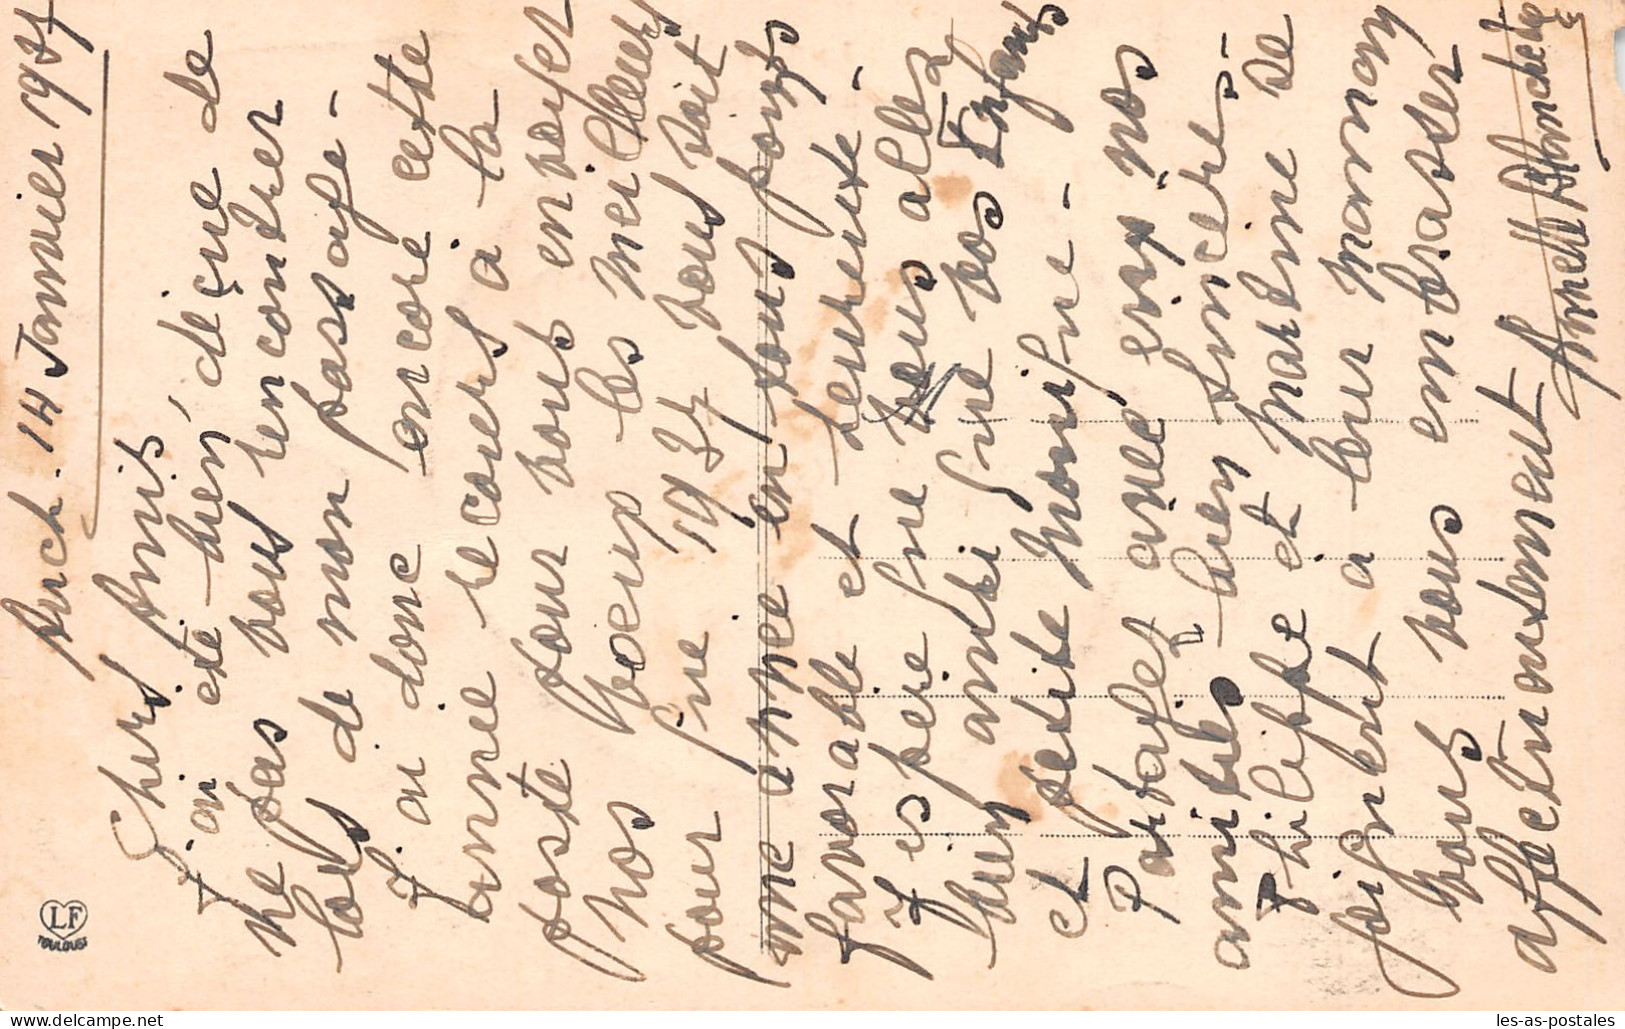 Auch. 14 Janvier 1937
Chers Amis
J'ai été bien déçue de
ne pas vous rencontrer
lors de mon passage -
J'ai donc encore cette
année recours à la
poste pour vous envoyer
nos voeux les meilleurs
pour que 1937 vous soit
une année en tous points
favorable et heureuse -
J'espère que vous allez
bien ainsi que vos Enfants
et petite Monique -
Partagez avec eux nos
amitiés bien sincères -
Philippe et Marlène se
joignent à leur maman
pour vous embrasser
affectueusement
Annette Blanchet
LF
TOULOUSE
les-as-postales